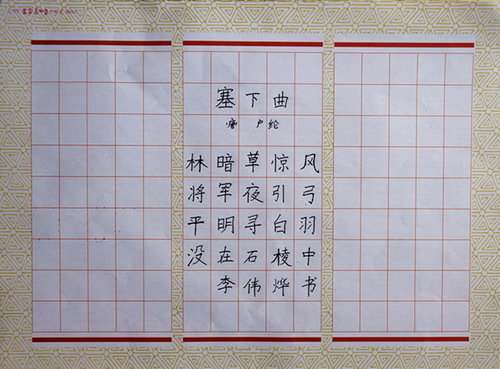 塞下曲
唐 卢纶
林暗草惊风
将军夜引弓
平明寻白羽
没在石棱中
李伟烨书